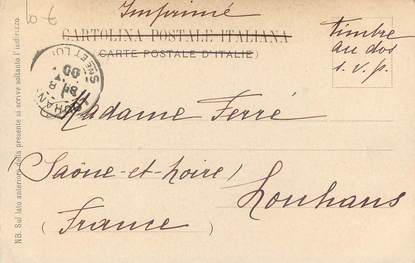 Imprimé
CARTOLINA POSTALE ITALIANA
(CARTE POSTALE D'ITALIE)
timbre
au dos
s. v. p.
Madame Ferré
(Saône-et-Loire) Louhans
(France)
NB. Sul lato anteriore della presente si scrive soltanto l'indirizzo.
LOUHANS
SNE ET LOI